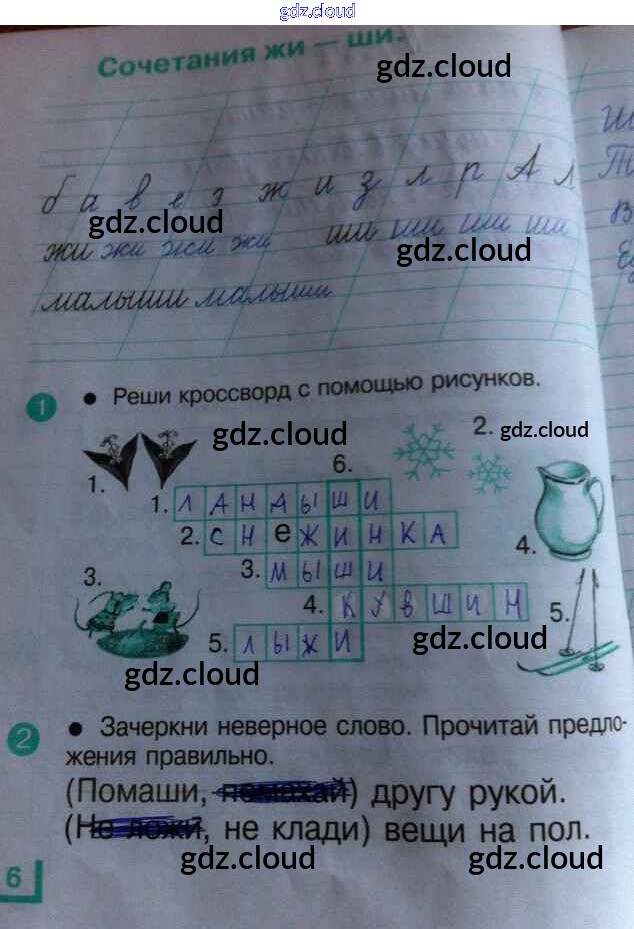 gdz.cloud
Сочетания жи — ши.
gdz.cloud
б а в е з ж и з л р А л
gdz.cloud
жи жи жи жи ши ши ши ши
gdz.cloud
малыши малыши
1 • Реши кроссворд с помощью рисунков.
gdz.cloud
2. gdz.cloud
6.
1.
1. ЛАНДЫШИ
2. СНеЖИНКА
4.
3.
3. МЫШИ
4. КУВШИН
5.
5. ЛЫЖИ
gdz.cloud
gdz.cloud
2 • Зачеркни неверное слово. Прочитай предло-
жения правильно.
(Помаши, помахай) другу рукой.
(Не ложи, не клади) вещи на пол.
gdz.cloud gdz.cloud
6